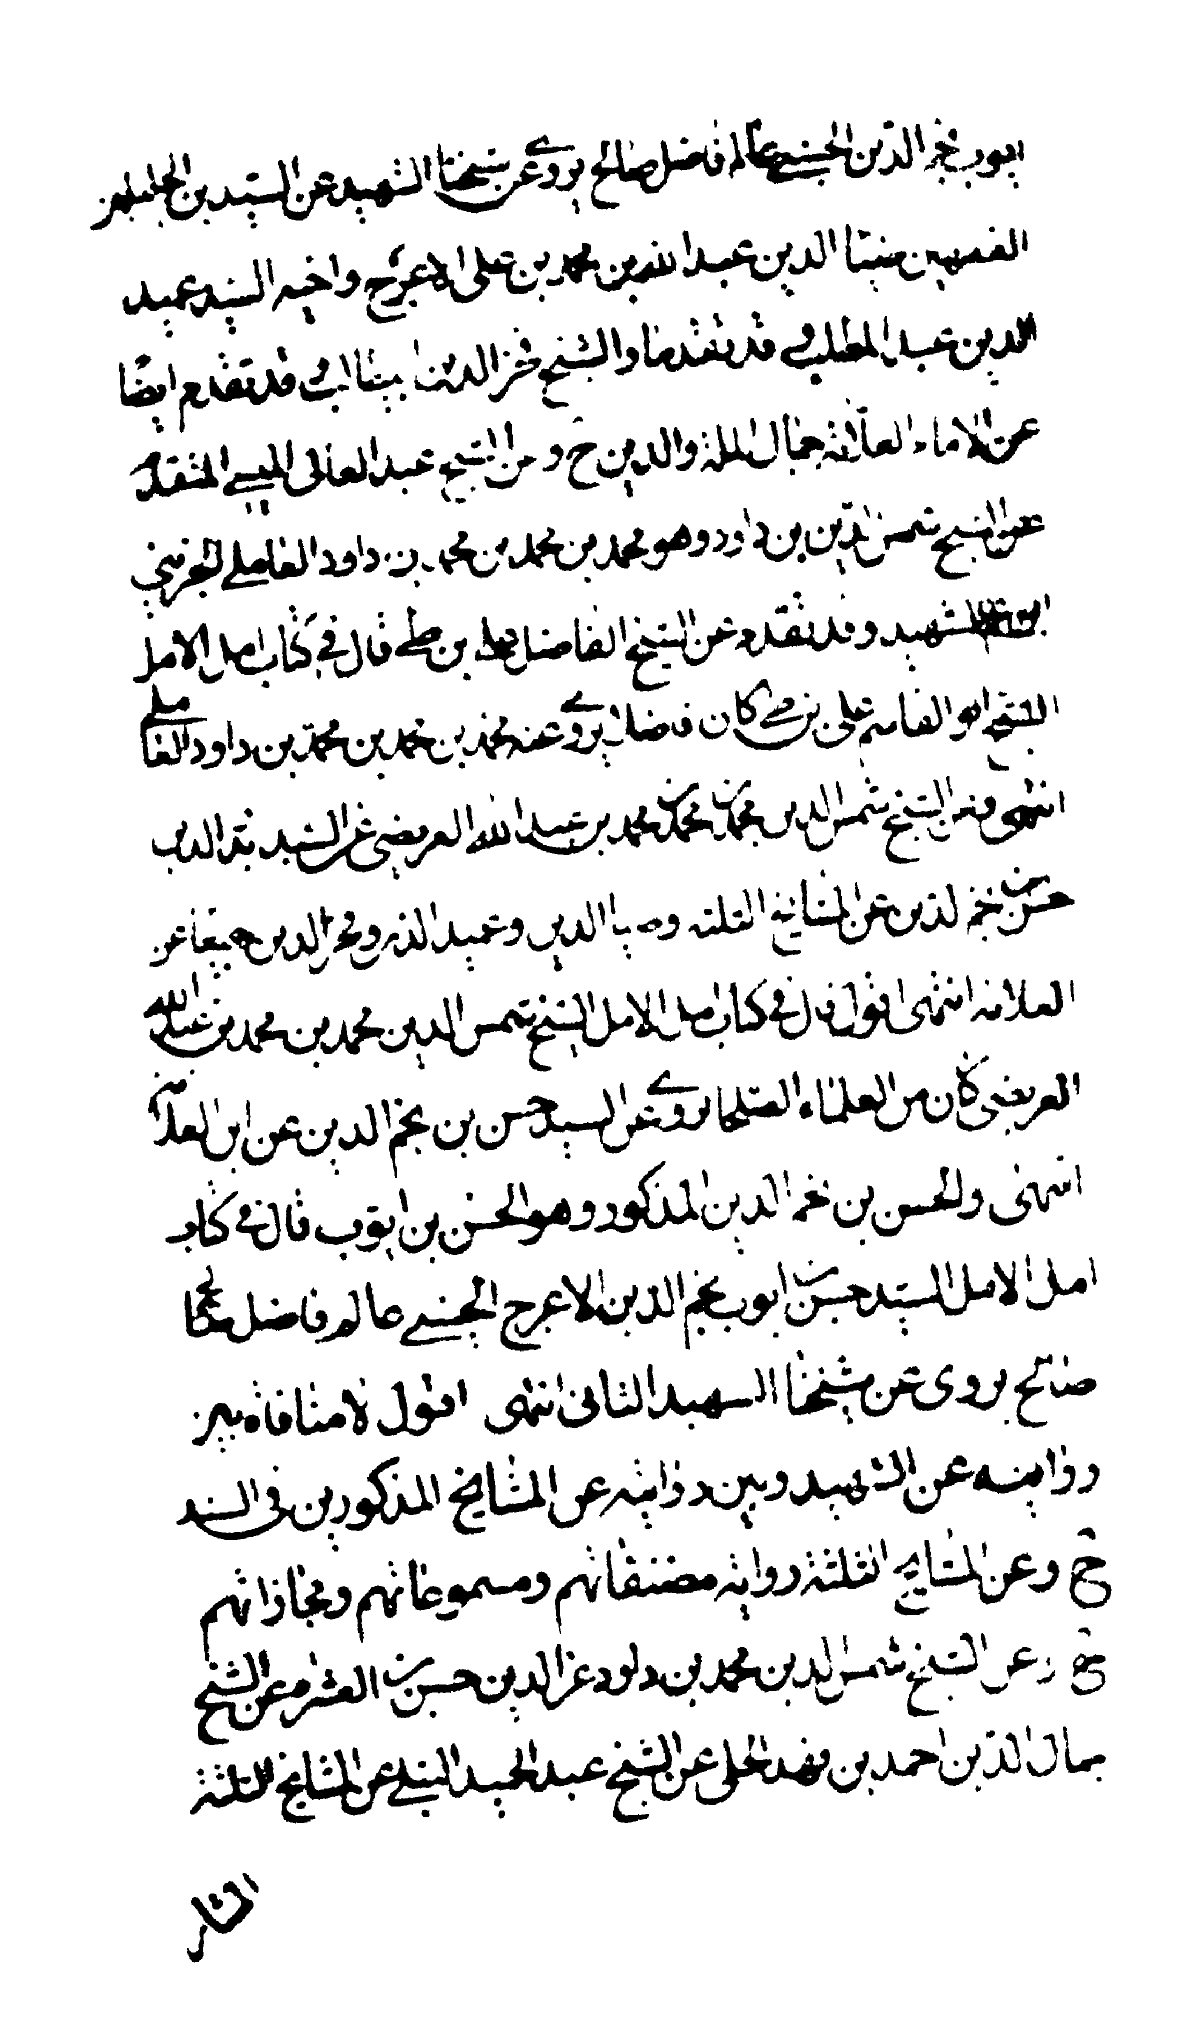 ايوب نجم الدين الحسيني عالم فاضل صالح يروي عن شيخنا الشهيد عن السيدين الجليلين
الفقيهين ضياء الدين عبد الله بن محمد بن علي الاعرج واخيه السيد عميد
الدين عبد المطلب وقد تقدما والشيخ فخر الدين وقد تقدم ايضا
عن الامام العلامة جمال الملة والدين ح وعن الشيخ عبد العالي الميسي المتقدم
عن الشيخ شمس الدين بن داود وهو محمد بن محمد بن محمد بن داود العاملي الجزيني
الشهيد وقد تقدم عن الشيخ الفاضل علي بن طي قال في كتاب امل الامل
الشيخ ابو القاسم علي بن طي كان فاضلا يروي عنه محمد بن محمد بن محمد بن داود العاملي
انتهى وعن الشيخ شمس الدين محمد بن محمد بن محمد بن عبد الله العريضي عن السيد بدر الدين
حسن بن نجم الدين عن المشايخ الثلثة ضياء الدين وعميد الدين وفخر الدين جميعا عن
العلامة انتهى اقول قال في كتاب امل الامل الشيخ شمس الدين محمد بن محمد بن عبد الله
العريضي كان من العلماء الصلحا يروي عن السيد حسن بن نجم الدين عن ابن العلامة
انتهى والحسن بن نجم الدين المذكور وهو الحسن بن ايوب قال في كتاب
امل الامل السيد حسن بن ايوب نجم الدين الاعرج الحسيني عالم فاضل
صالح يروى عن شيخنا الشهيد الثانى انتهى اقول لا منافاة بين
روايته عن الشهيد وبين روايته عن المشايخ المذكورين فى السند
ح وعن المشايخ الثلثة رواية مصنفاتهم ومسموعاتهم ومجازاتهم
ح وعن الشيخ شمس الدين محمد بن داود عز الدين حسن بن العشرة عن الشيخ
جمال الدين احمد بن فهد الحلى عن الشيخ عبد الحميد النيلي عن المشايخ الثلثة